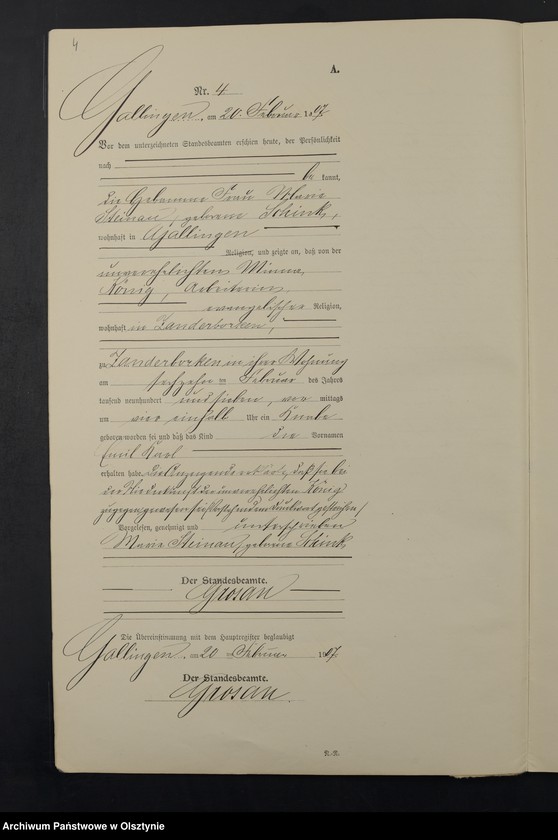 4
A.
Nr. 4
Gallingen, am 20. Februar 1907
Vor dem unterzeichneten Standesbeamten erschien heute, der Persönlichkeit
nach
be kannt,
die Hebamme Frau Marie
Steinau, geborene Schink,
wohnhaft in Gallingen
Religion, und zeigte an, daß von der
unverehelichten Minna
König, Arbeiterin,
evangelischer Religion,
wohnhaft in Zanderborken,
zu Zanderborken in ihrer Wohnung
am sechzehn ten Februar des Jahres
tausend neunhundert und sieben, vor mittags
um vier einhalb Uhr ein Knabe
geboren worden sei und daß das Kind die Vornamen
Emil Karl
erhalten habe. Die Anzeigende erklärte, daß sie bei
der Niederkunft der unverehelichten König
zugegen gewesen sei.
Vorgelesen, genehmigt und unterschrieben
Marie Steinau, geborene Schink
Der Standesbeamte.
Grosau
Die Übereinstimmung mit dem Hauptregister beglaubigt
Gallingen, am 20 Februar 1907.
Der Standesbeamte.
Grosau.
Archiwum Państwowe w Olsztynie